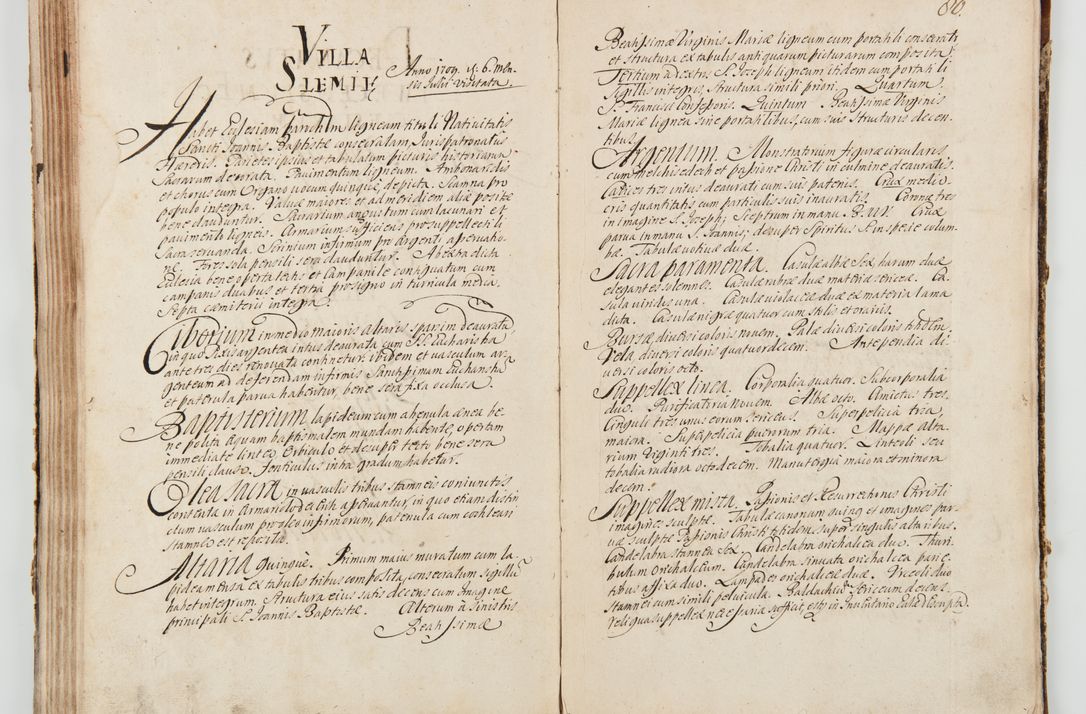 VILLA
SLEMIĘ
Anno 1709. 15. 6. Men-
sis Julii visitata.
Habet Ecclesiam parochlm ligneam tituli Nativitatis
Sancti Joannis Baptistæ consecratam, Jurispatronatus
Hæredis. Parietes ipsius et tabulatum picturis historiarum
Sacrarum decorata. Pavimentum ligneum. Ambona reclis
et chorus cum Organo vocum quinque, depicta. Scamna pro
populo integra. Valvæ maiores et ad meridiem aliæ positæ
bene clauduntur. Sacrarium angustum cum lacunari et
pavimento ligneis. Armarium sufficiens pro suppellectili
Sacra servanda. Scrinium infirmum pro argenti asservatio-
ne. Fores sola pensili sera clauduntur. Ab extra dicta
Ecclesia bene operta tectis et Campanile contiguatum cum
campanis duabus et tertia pro signo in turricula media.
Septa cæmiterii integra.
Ciborium in medio maioris altaris sparsim deauratu,
in quo Pixis argentea intus deaurata cum SS. Eucharistia
ante tres dies renovata continetur. ibidem et vasculum ar-
genteum ad deferendam infirmis Sanctissimam Euchastia
et paterula parva habentur, bene sera fixa occlusa.
Baptisterium lapideum cum ahenula ænea be-
ne polita aquam baptismalem mundam habente, opertum
immediate linteo, Orbiculo et desuper tecto bene sera
pensili clauso. Fonticulus infra gradum habetur.
Olea Sacra in vasculis tribus stanneis coniunctis
contenta in Armariolo decenti asservantur, in quo etiam distin
ctum vasculum pro oleo infirmorum, patenula cum cochleari
stanneo est reposita.
Altaria quinque. Primum maius muratum cum la-
pidea mensa ex tabulis tribus composita, consecratum sigillu
habet integrum. Structura eius satis decens cum Imagine
principali S. Joannis Baptistæ. Alterum à Sinistris
Beatissimæ
80.
Beatissimæ Virginis Mariæ ligneum cum portatili consecrato
et structura ex tabulis antiquarum picturarum composita
Tertium à dextris S. Joseph ligneum itidem cum portatili
Sigillis integris, Structura simili priori. Quartum
S. Francisci Confessoris. Quintum Beatissimæ Virginis
Mariæ lignea sine portatilibus, cum suis Structuris decen-
tibus.
Argentum. Monstratorium figuræ circularis
cum Melchisedech et passione Christi in culmine deauratis.
Calices tres intus deaurati cum suis patenis. Crux medio
cris quantitatis cum particulis suis inauratis. Coronæ tres
in imagine S. Joseph; Sceptrum in manu B.M.V. Crux
parva in manu S. Joannis; desuper Spiritus S. in specie colum-
bæ. Tabulæ votivæ duæ.
Sacra paramenta. Casulæ albæ sex, harum duæ
elegantes solemnes. Casulæ rubræ duæ materiæ sericeæ. Ca-
sula viridis una. Casulæ violaceæ duæ ex materia lama
dicta. Casulæ nigræ quatuor cum stolis et orariis.
Bursæ, diversi coloris novem. Palæ diversi coloris totidem.
Vela diversi coloris quatuordecem. Antependia di-
versi coloris octo.
Suppellex linea. Corporalia quatuor. Subcorporalia
duo. Purificatoria novem. Albæ octo. Amictus tres.
Cinguli tres unus eorum sericeus. Superpelicia tria,
maiora. Superpelicia puerorum tria. Mappæ alta-
rium viginti tres. Tobalia quatuor. Linteoli seu
tobalia rudiora octodecem. Manutergia maiora et minora
decem.
Suppellex mixta. Passionis et Resurrectionis Christi
imagines sculptæ. Tabulæ canonum quinq et imagines par-
væ sculptæ Passionis Christi totidem, super singulis altaribus.
Candelabra stannea sex. Candelabra orichalcea duo. Thuri-
bulum orichalceum. Candelabra sinuata orichalcea parie-
tibus affixa duo. Lampades orichalceæ duæ. Urceoli duo
stannei cum simili pelvicula. Baldachinu sericeum decens.
reliqua suppellex necessaria sufficit, estq in Inventario Ecclæ descripta.